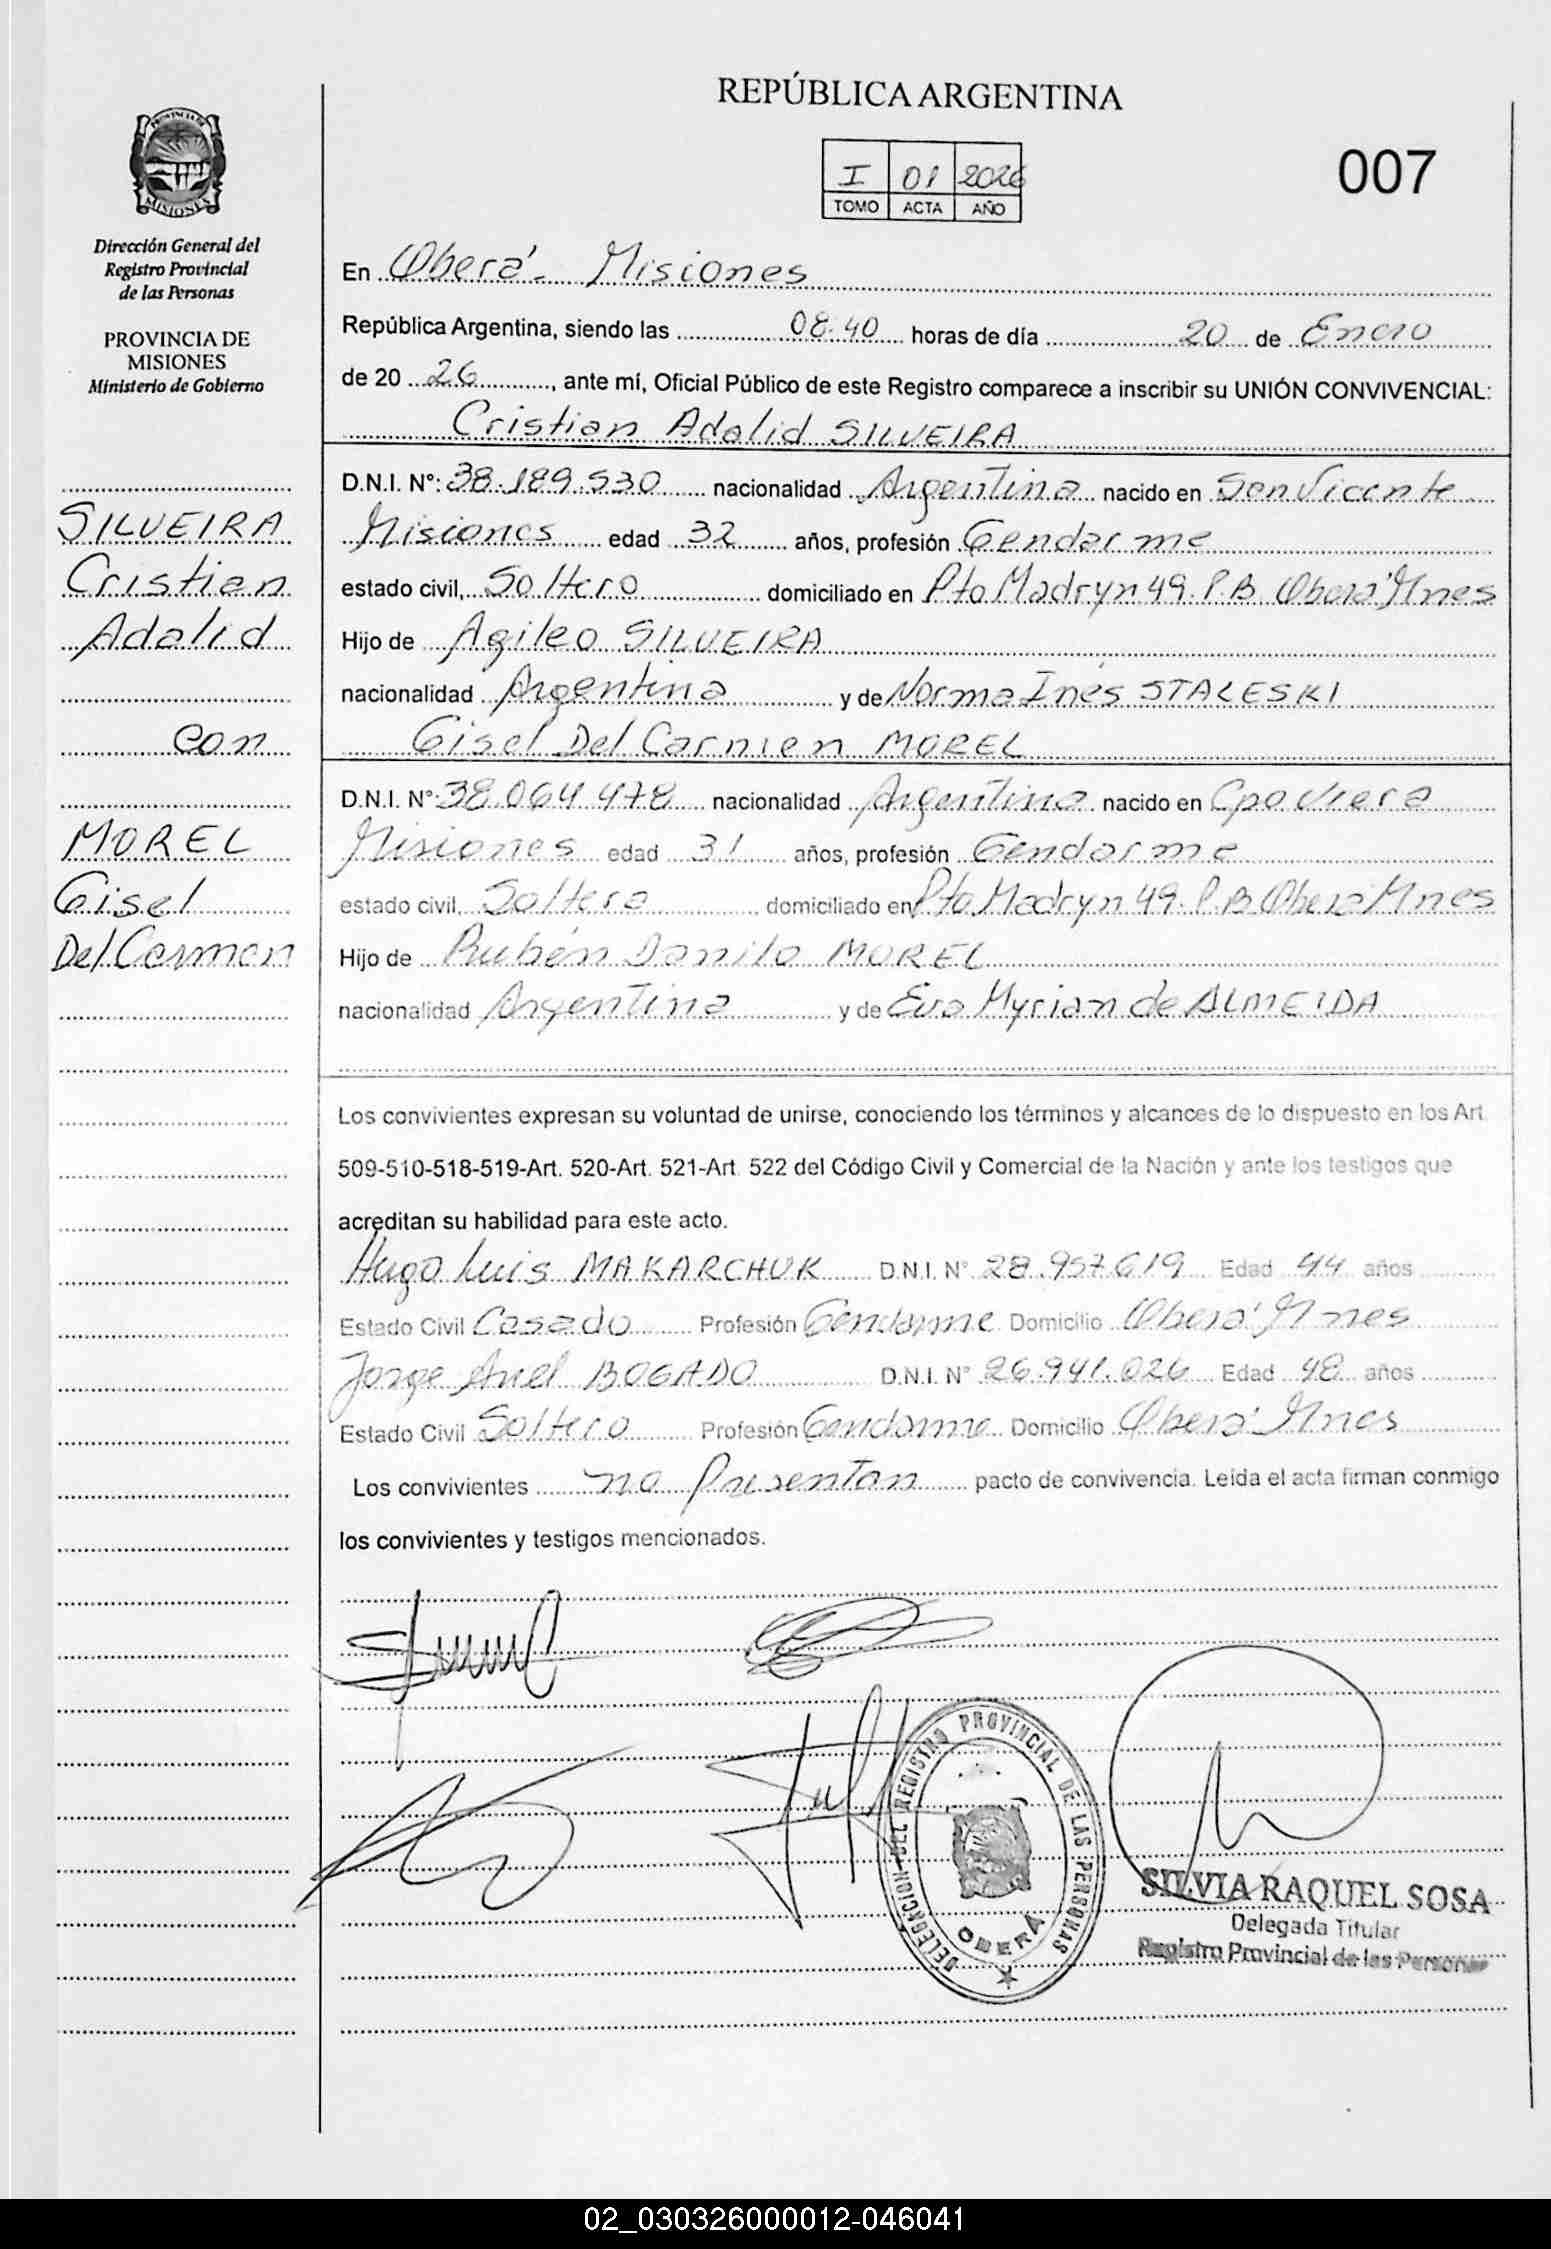 REPÚBLICA ARGENTINA
007
I 01 2026
TOMO ACTA AÑO
PROVINCIA DE
MISIONES
Dirección General del
Registro Provincial
de las Personas
PROVINCIA DE
MISIONES
Ministerio de Gobierno
SILVEIRA
Cristian
Adalid
con
MOREL
Gisel
Del Carmen
En Oberá - Misiones
República Argentina, siendo las 08:40 horas de día 20 de Enero
de 20 26, ante mí, Oficial Público de este Registro comparece a inscribir su UNIÓN CONVIVENCIAL:
Cristian Adalid SILVEIRA
D.N.I. Nº: 38.189.530 nacionalidad Argentina nacido en San Vicente
Misiones edad 32 años, profesión Gendarme
estado civil, Soltero domiciliado en Pto Madryn 49. P.B Oberá Mnes
Hijo de Agileo SILVEIRA
nacionalidad Argentina y de Norma Inés STALESKI
Gisel Del Carmen MOREL
D.N.I. Nº: 38.064.478 nacionalidad Argentina nacido en Cpo Viera
Misiones edad 31 años, profesión Gendarme
estado civil, Soltera domiciliado en Pto Madryn 49. P.B Oberá Mnes
Hijo de Rubén Danilo MOREL
nacionalidad Argentina y de Eva Myrian de ALMEIDA
Los convivientes expresan su voluntad de unirse, conociendo los términos y alcances de lo dispuesto en los Art.
509-510-518-519-Art. 520-Art. 521-Art. 522 del Código Civil y Comercial de la Nación y ante los testigos que
acreditan su habilidad para este acto.
Hugo Luis MAKARCHUK D.N.I. Nº 28.957.619 Edad 44 años
Estado Civil Casado Profesión Gendarme Domicilio Oberá Mnes
Jorge Ariel BOGADO D.N.I. Nº 26.941.026 Edad 48 años
Estado Civil Soltero Profesión Gendarme Domicilio Oberá Mnes
Los convivientes no Presentan pacto de convivencia. Leída el acta firman conmigo
los convivientes y testigos mencionados.
DELEGACION DEL REGISTRO PROVINCIAL DE LAS PERSONAS
OBERÁ
SILVIA RAQUEL SOSA
Delegada Titular
Registro Provincial de las Personas
02_030326000012-046041